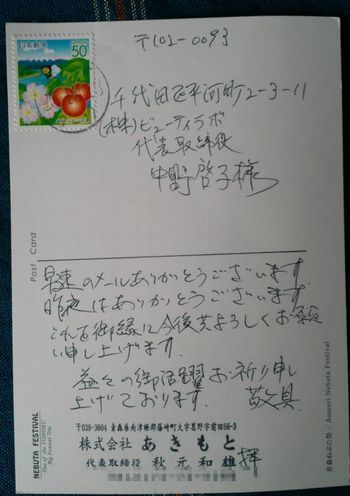 日本郵便
50
〒102-0093
千代田区平河町2-3-11
(株)ビューティラボ
代表取締役
中野啓子様
早速のメールありがとうございます
昨夜はありがとうございます
これを御縁に今後共よろしくお願
い申し上げます.
益々の御活躍お祈り申し
上げております 敬具
〒038-3804 青森県南津軽郡藤崎町大字葛野字富田66-3
株式会社 あきもと
代表取締役 秋元和雄 拝
Post Card
NEBUTA FESTIVAL
One of the TOHOKU
Big Festival Trio
青森ねぶた祭 / Aomori Nebuta Festival